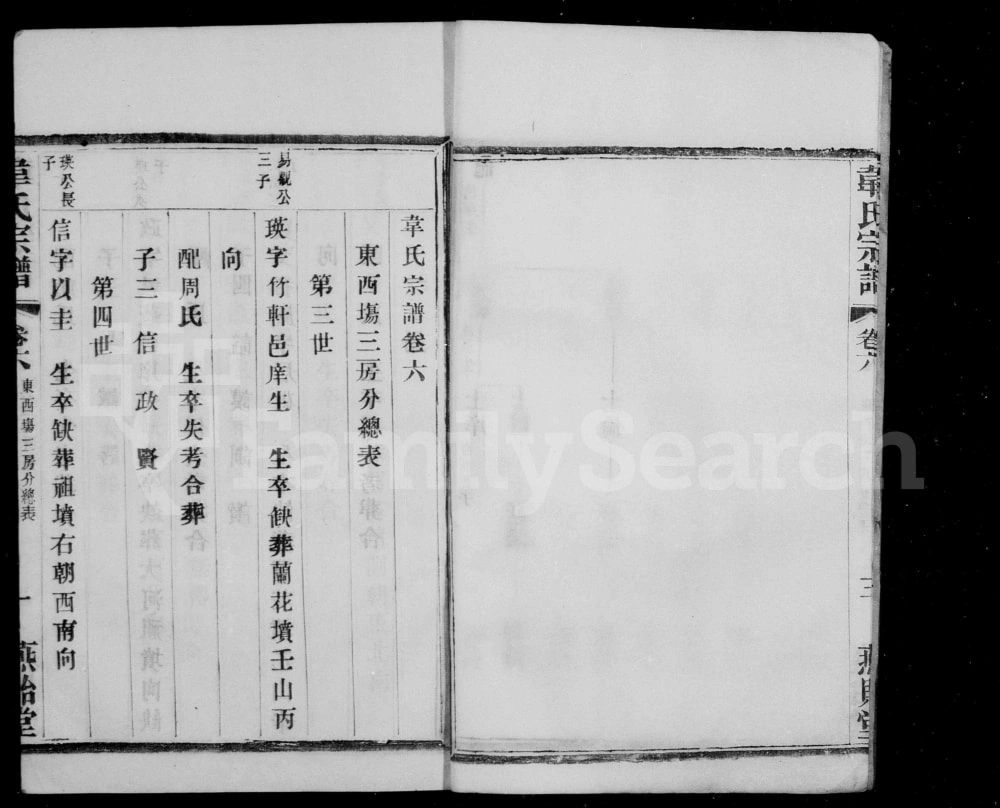 韋氏宗譜
卷六
三
燕貽堂
韋氏宗譜卷六
東西塲三房分總表
第三世
易觀公
三子
瑛字竹軒邑庠生 生卒缺葬蘭花墳壬山丙
向
配周氏 生卒失考合葬
子三 信 政 賢
第四世
瑛公長
子
信字以圭 生卒缺葬祖墳右朝西南向
韋氏宗譜
卷六
東西塲三房分總表
一
燕貽堂
FamilySearch